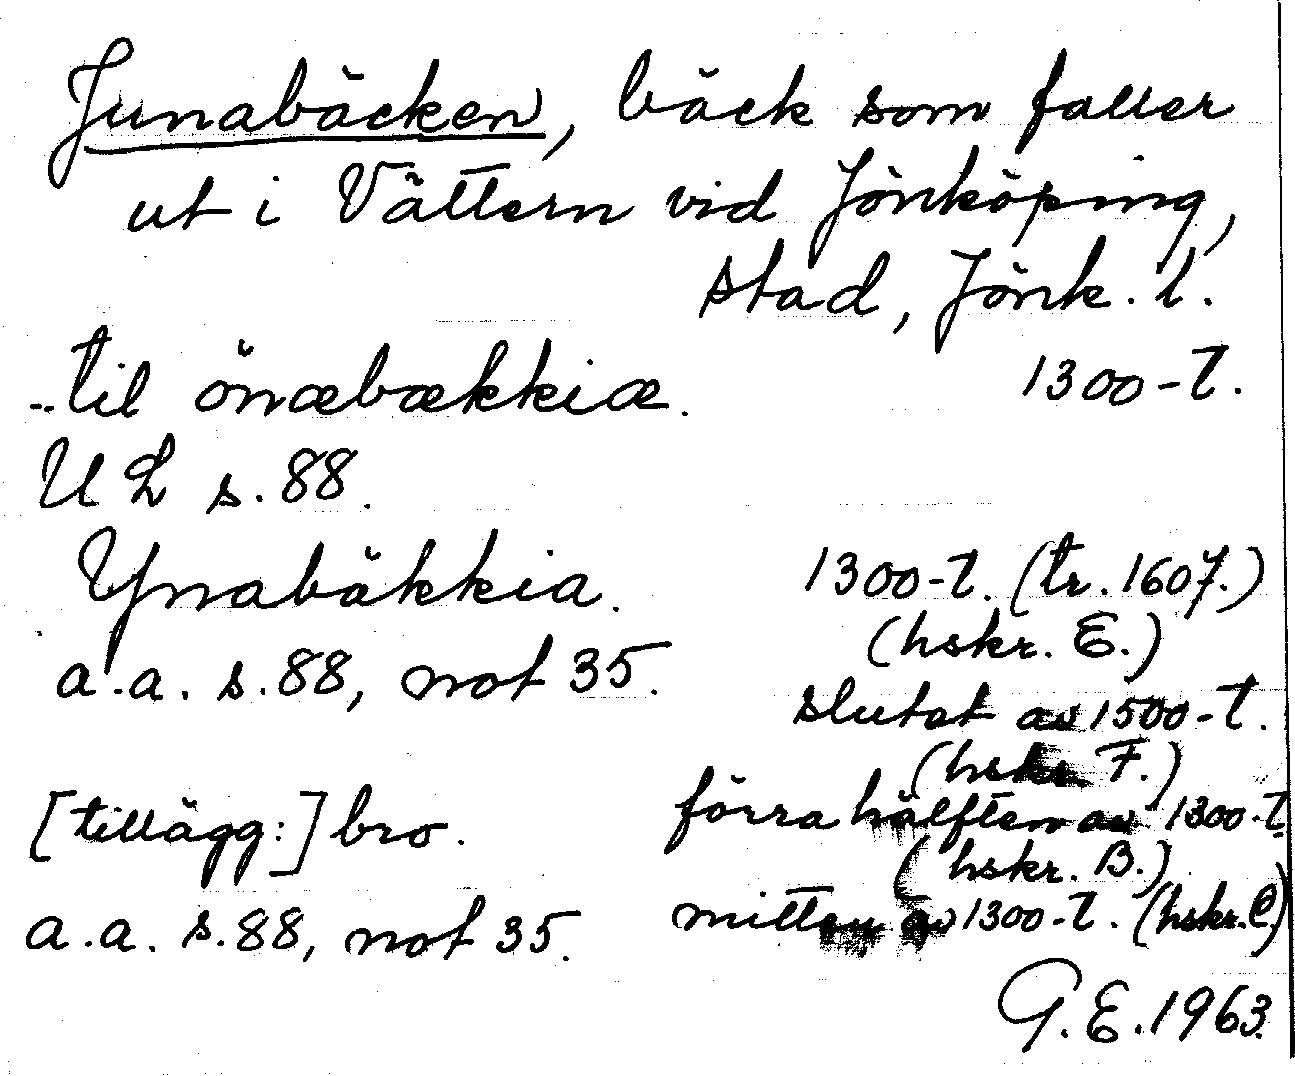 Junabäcken, bäck som faller
ut i Vättern vid Jönköping,
stad, Jönk. l.
..til önæbækkiæ. 1300-t.
UL s. 88.
Ynabäkkia. 1300-t. (tr. 1607.)
(hskr. E.)
a.a. s. 88, not 35.
slutet av 1500-t.
(hskr. F.)
[tillägg:] bro. förra hälften av 1300-t.
(hskr. B.)
a.a. s. 88, not 35. mitten av 1300-t. (hskr. C.)
G. E. 1963.